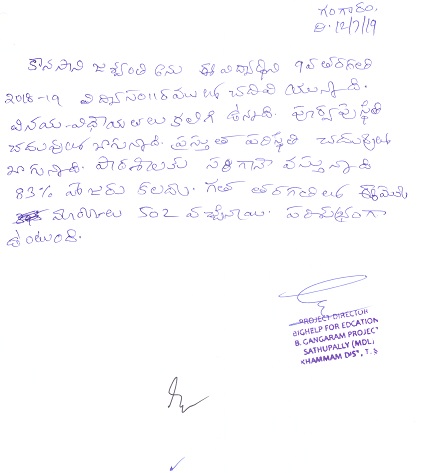 గంగారం.
ది. 12/7/19
కొనపాని జశ్వంతి అను ఈ విద్యార్థిని 9వ తరగతి
2018-19 విద్యాసంవత్సరములో చదివి యున్నాది.
వినయ-విధేయతలు కలిగి ఉన్నాది. పూర్వపుస్థితి
చదువులో బాగున్నాది. ప్రస్తుత పరిస్థితి చదువులో
బాగున్నాది. పాఠశాలకు సరిగానే వస్తున్నాది
83% హాజరు కలదు. గత తరగతిలో ఈమెకి
మార్కులు 502 వచ్చినాయి. పరిశుభ్రంగా
ఉంటుంది.
PROJECT DIRECTOR
BIGHELP FOR EDCATION
B. GANGARAM PROJECT
SATHUPALLY (MDL)
KHAMMAM DIST, T.S